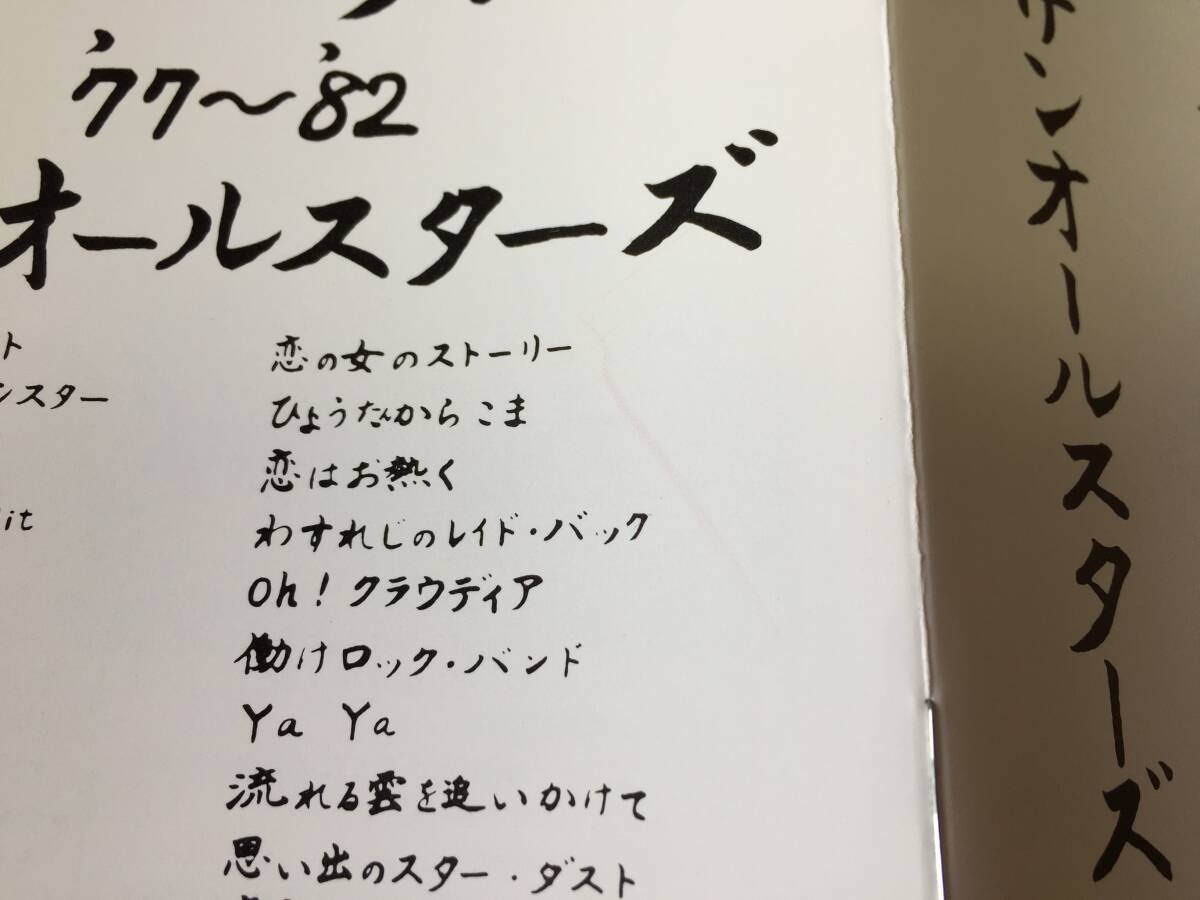 '77〜'82
オールスターズ
ト
ンスター
it
恋の女のストーリー
ひょうたんからこま
恋はお熱く
わすれじのレイド・バック
Oh! クラウディア
働けロック・バンド
Ya Ya
流れる雲を追いかけて
思い出のスター・ダスト
ザンオールスターズ